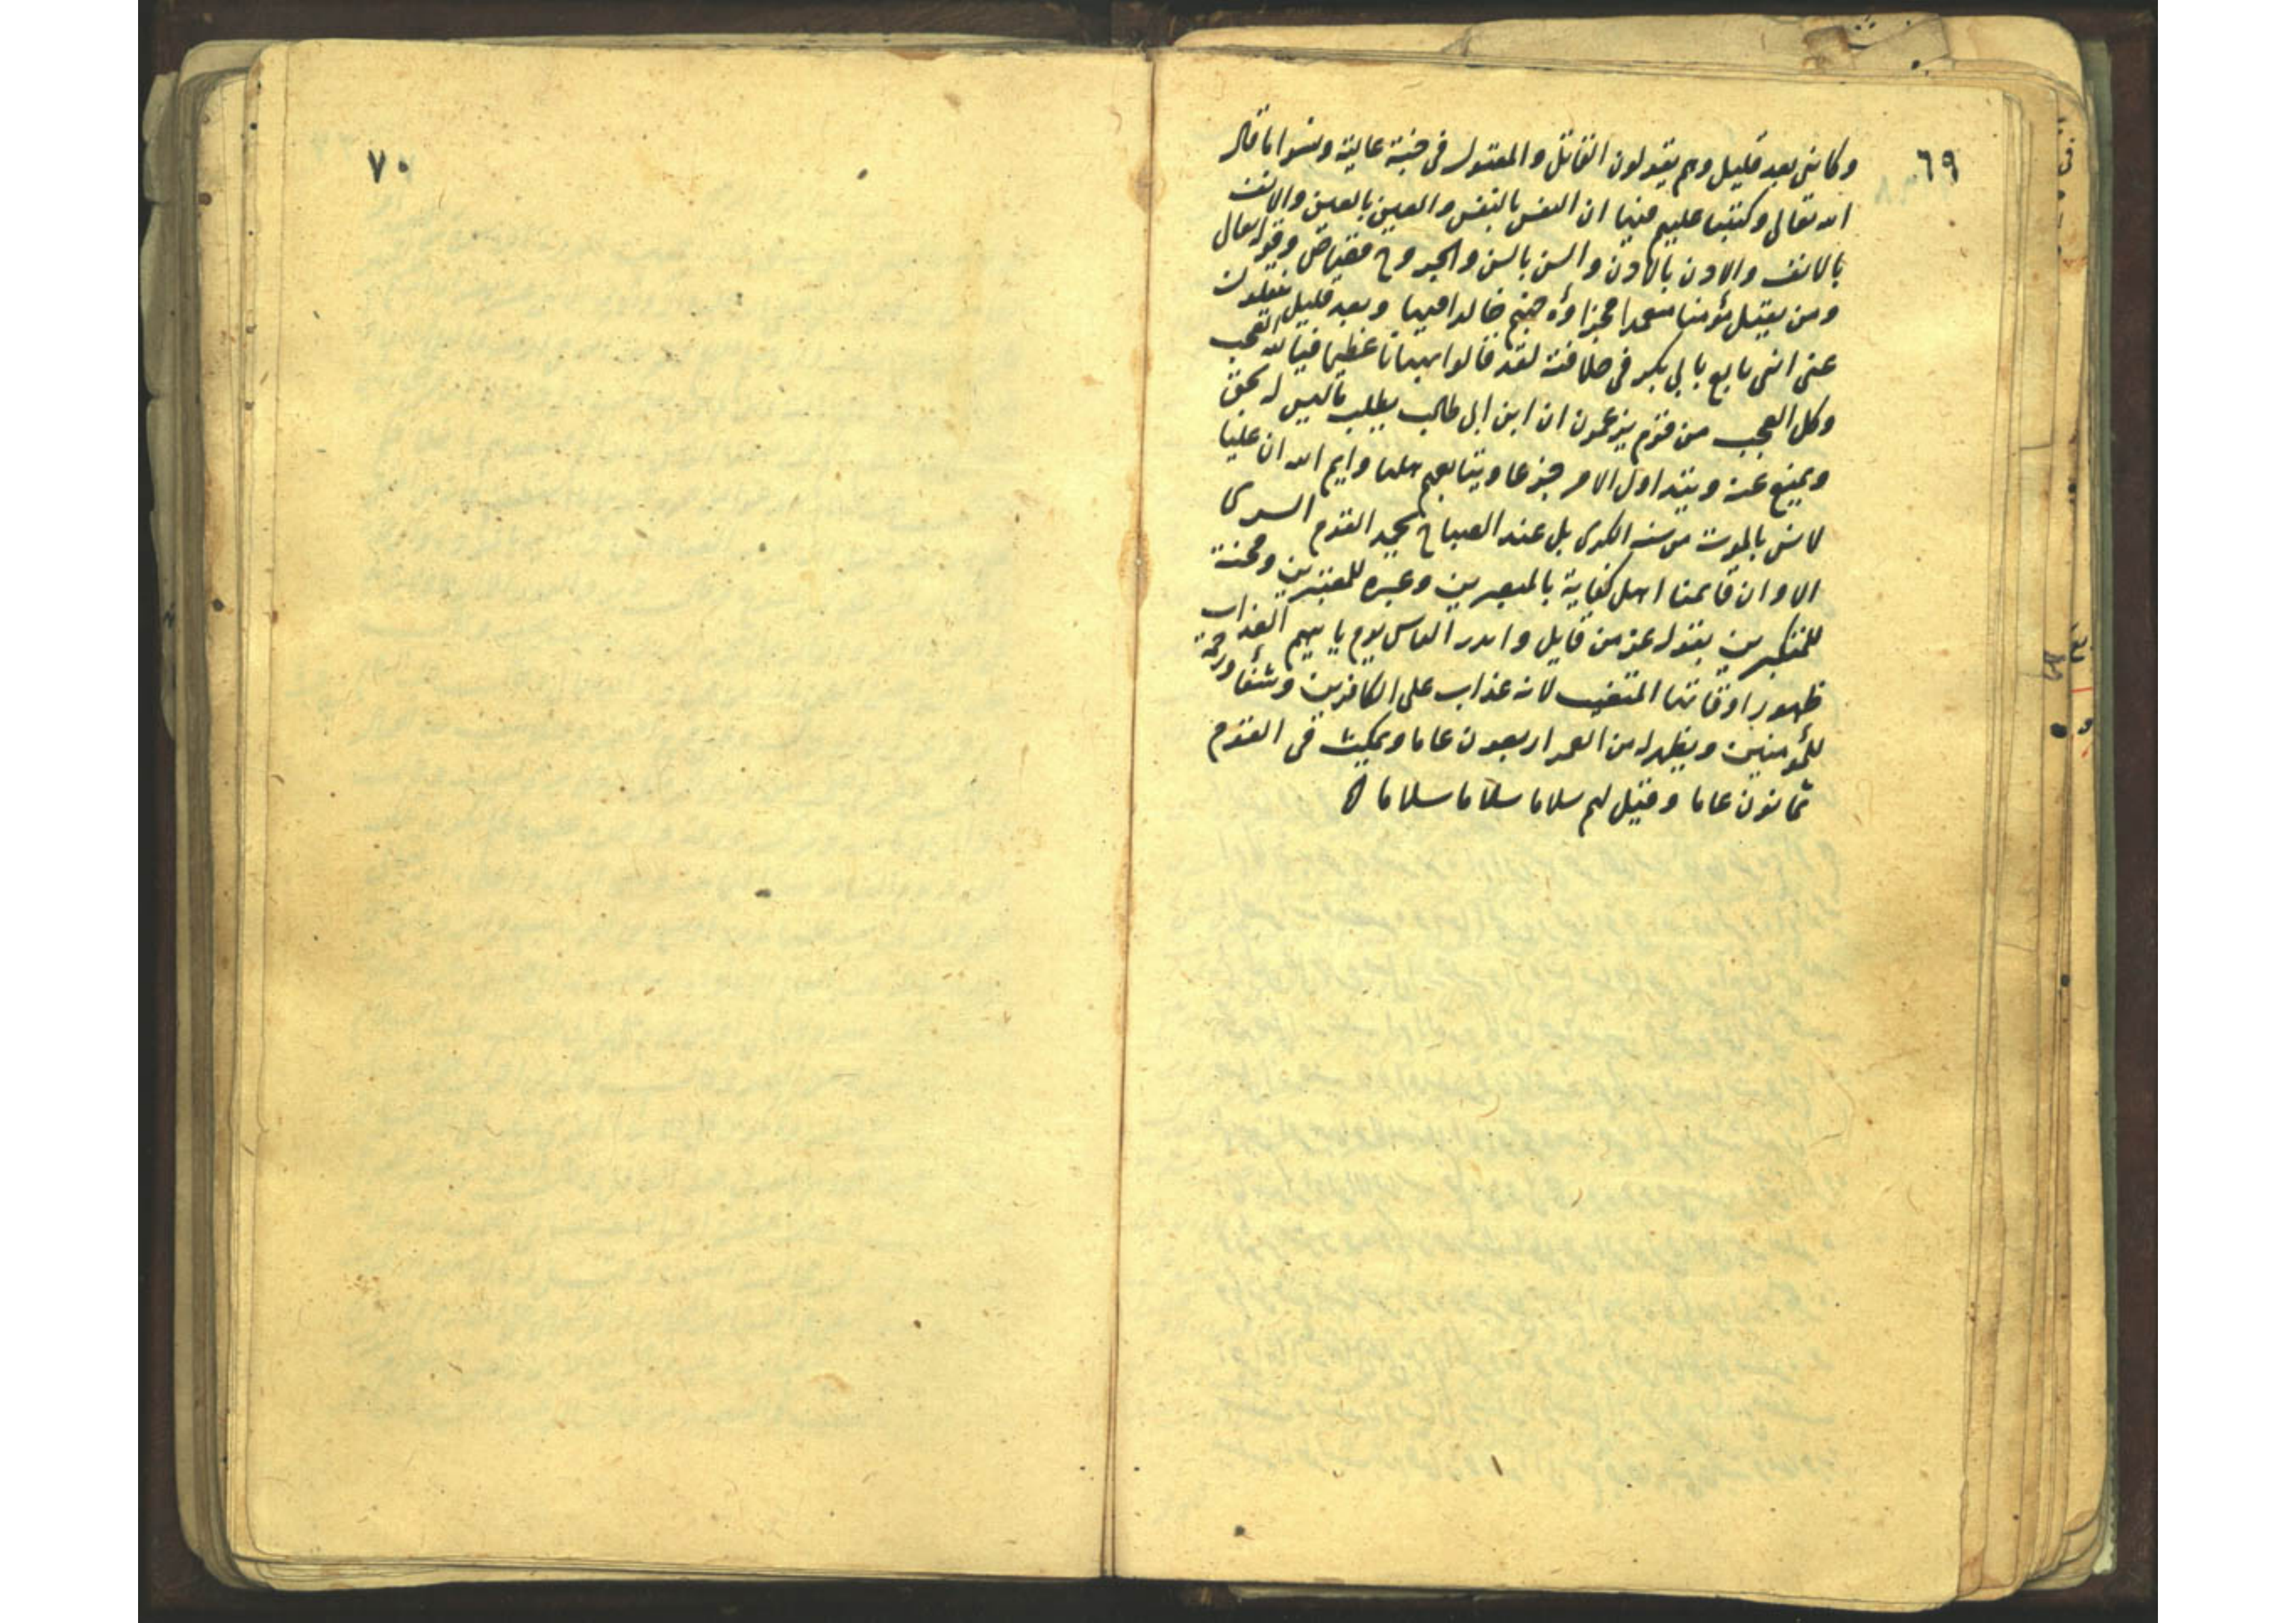 ٦٩
وكانى بعد قليل وهم يقولون القاتل والمقتول فى جنة عالية ونسوا ما قال
الله تعالى وكتبنا عليهم فيها ان النفس بالنفس والعين بالعين والانف
بالانف والاذن بالاذن والسن بالسن والجروح قصاص وقوله تعالى
ومن يقتل مؤمنا متعمدا فجزاؤه جهنم خالدا فيها وبعد قليل ينقلون
عنى اننى بايع بابى بكر فى خلافته لقد قالوا بهتانا عظيما فيالله العجب
وكل العجب من قوم يزعمون ان ابن ابى طالب يطلب ما ليس له بحق
ويمنع عنه ويتداول الامر جزعا ويتابعهم هلعا وايم الله ان عليا
لانس بالموت من سنة الكرى بل عند الصباح يحمد القوم السرى
الا وان قايمنا اهل كفاية بالمبصرين وعبره للمعتبرين ومحنة
للمتكبرين بقوله عز من قايل وانذر الناس يوم ياتيهم العذاب
ظهور قائمنا المتغيب لانه عذاب على الكافرين وشفا ورحمة
للمؤمنين ويظهر له من العمر اربعون عاما ويمكث فى القوم
ثمانون عاما وقيل لهم سلاما سلاما سلاما
٧٠